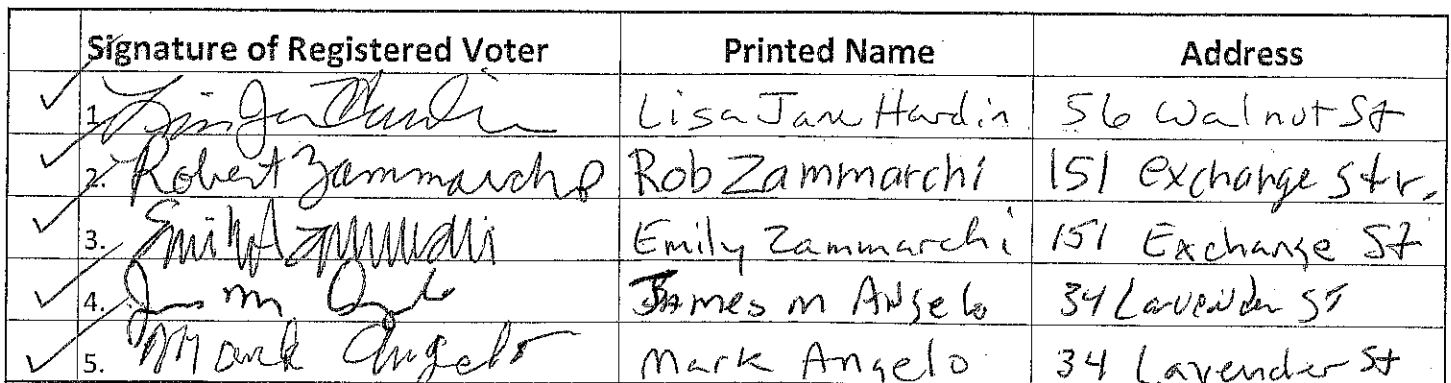 Signature of Registered Voter Printed Name Address
1. Lisa Jane Hardin Lisa Jane Hardin 56 Walnut St
2. Robert Zammarchi Rob Zammarchi 151 exchange Str.
3. Emily Zammarchi Emily Zammarchi 151 Exchange St
4. James M Angelo James M Angelo 34 Lavender ST
5. Mark Angelo Mark Angelo 34 Lavender St